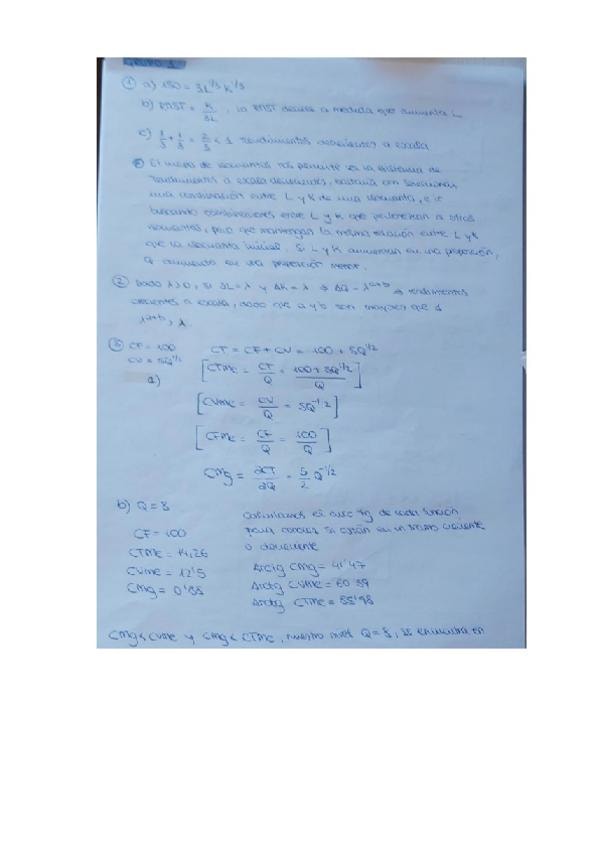 GRUPO 1
① a) 150 = 3L^1/3 K^1/3
b) RMST = K/3L, la RMST decrece a medida que aumenta L
c) 1/3 + 1/3 = 2/3 < 1 rendimientos decrecientes a escala
El mapa de isocuantas nos permite ver la existencia de
rendimientos a escala decrecientes, bastaría con seleccionar
una combinación entre L y K de una isocuanta, e ir
buscando combinaciones entre L y K que pertenezcan a otras
isocuantas, pero que mantengan la misma relación entre L y K
que la isocuanta inicial. Si L y K aumentan en una proporción,
Q aumenta en una proporción menor.
② Dado λ>0, si ΔL=λ y ΔK=λ ⇒ ΔQ = λ^a+b ⇒ rendimientos
crecientes a escala, dado que a y b son mayores que 1
λ^a+b, λ
③ CF = 100 CT = CF + CV = 100 + 5Q^1/2
CV = 5Q^1/2
a) [CTMe = CT/Q = 100 + 5Q^1/2 / Q]
[CVMe = CV/Q = 5Q^-1/2]
[CFMe = CF/Q = 100/Q]
CMg = ∂CT/∂Q = 5/2 Q^-1/2
b) Q = 8
CF = 100
CTMe = 14,26
CVMe = 1
CMg = 0'88
Calculamos el arc tg de cada función
para conocer si están en un tramo creciente
o decreciente
Arctg CMg = 41'47
Arctg CVMe = 60'
Arctg CTMe =
CMg < CVMe y CMg < CTMe, nuestro nivel Q = 8, se encuentra en